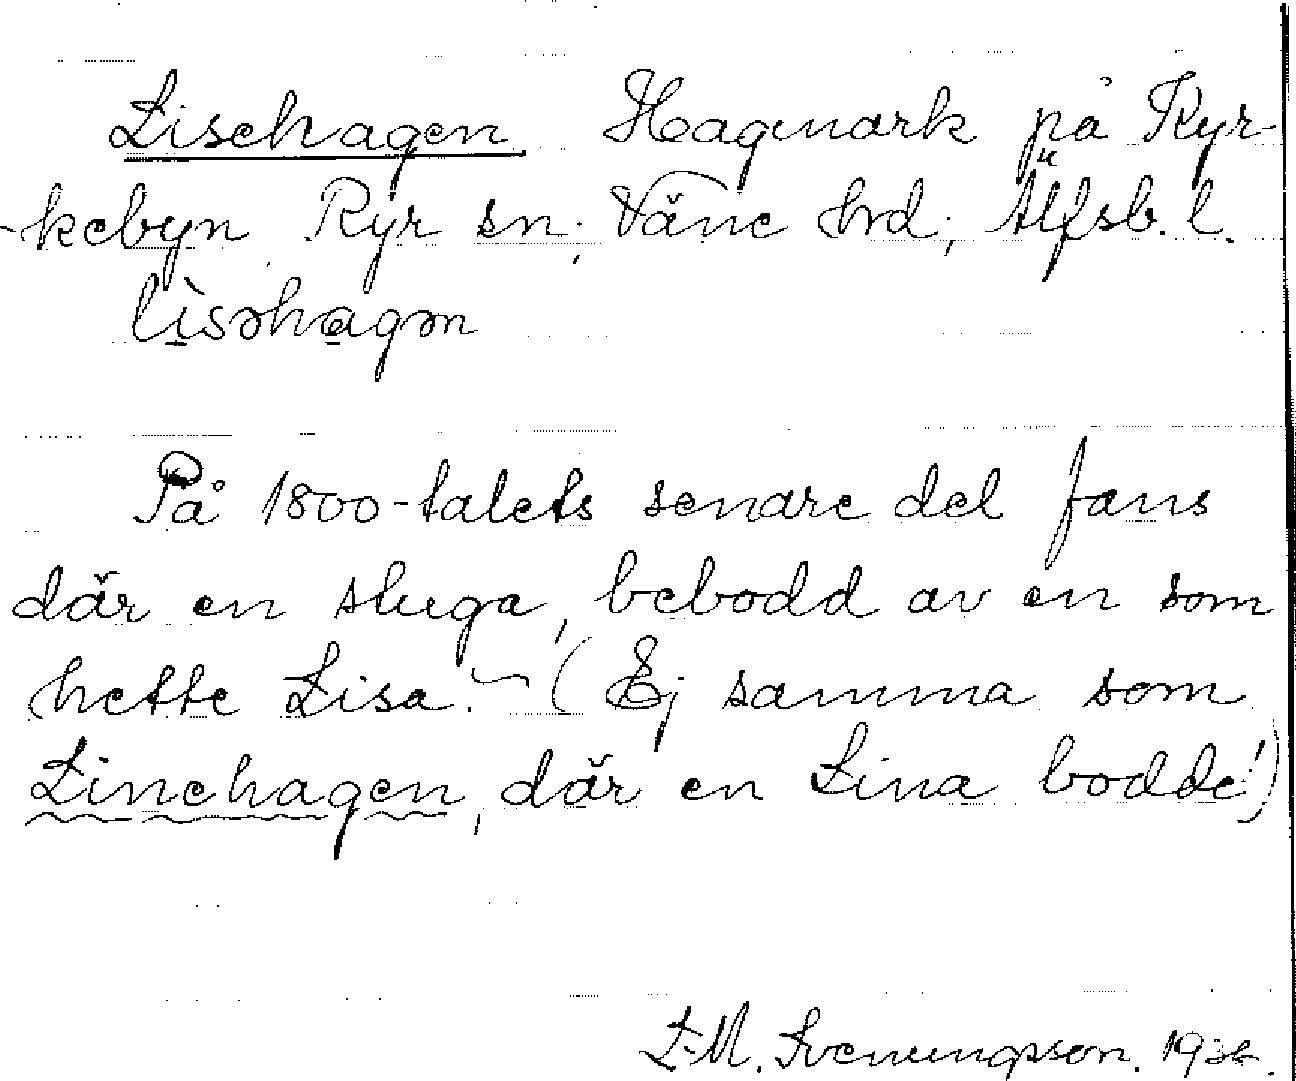 Lisehagen Hagmark på Kyr-
-kebyn Ryr sn; Väne hrd; Älfsb. l.
lìsəhagən
På 1800-talets senare del fans
där en stuga, bebodd av en som
hette Lisa. (Ej samma som
Linehagen, där en Lina bodde!)
L.M. Svenungsson.